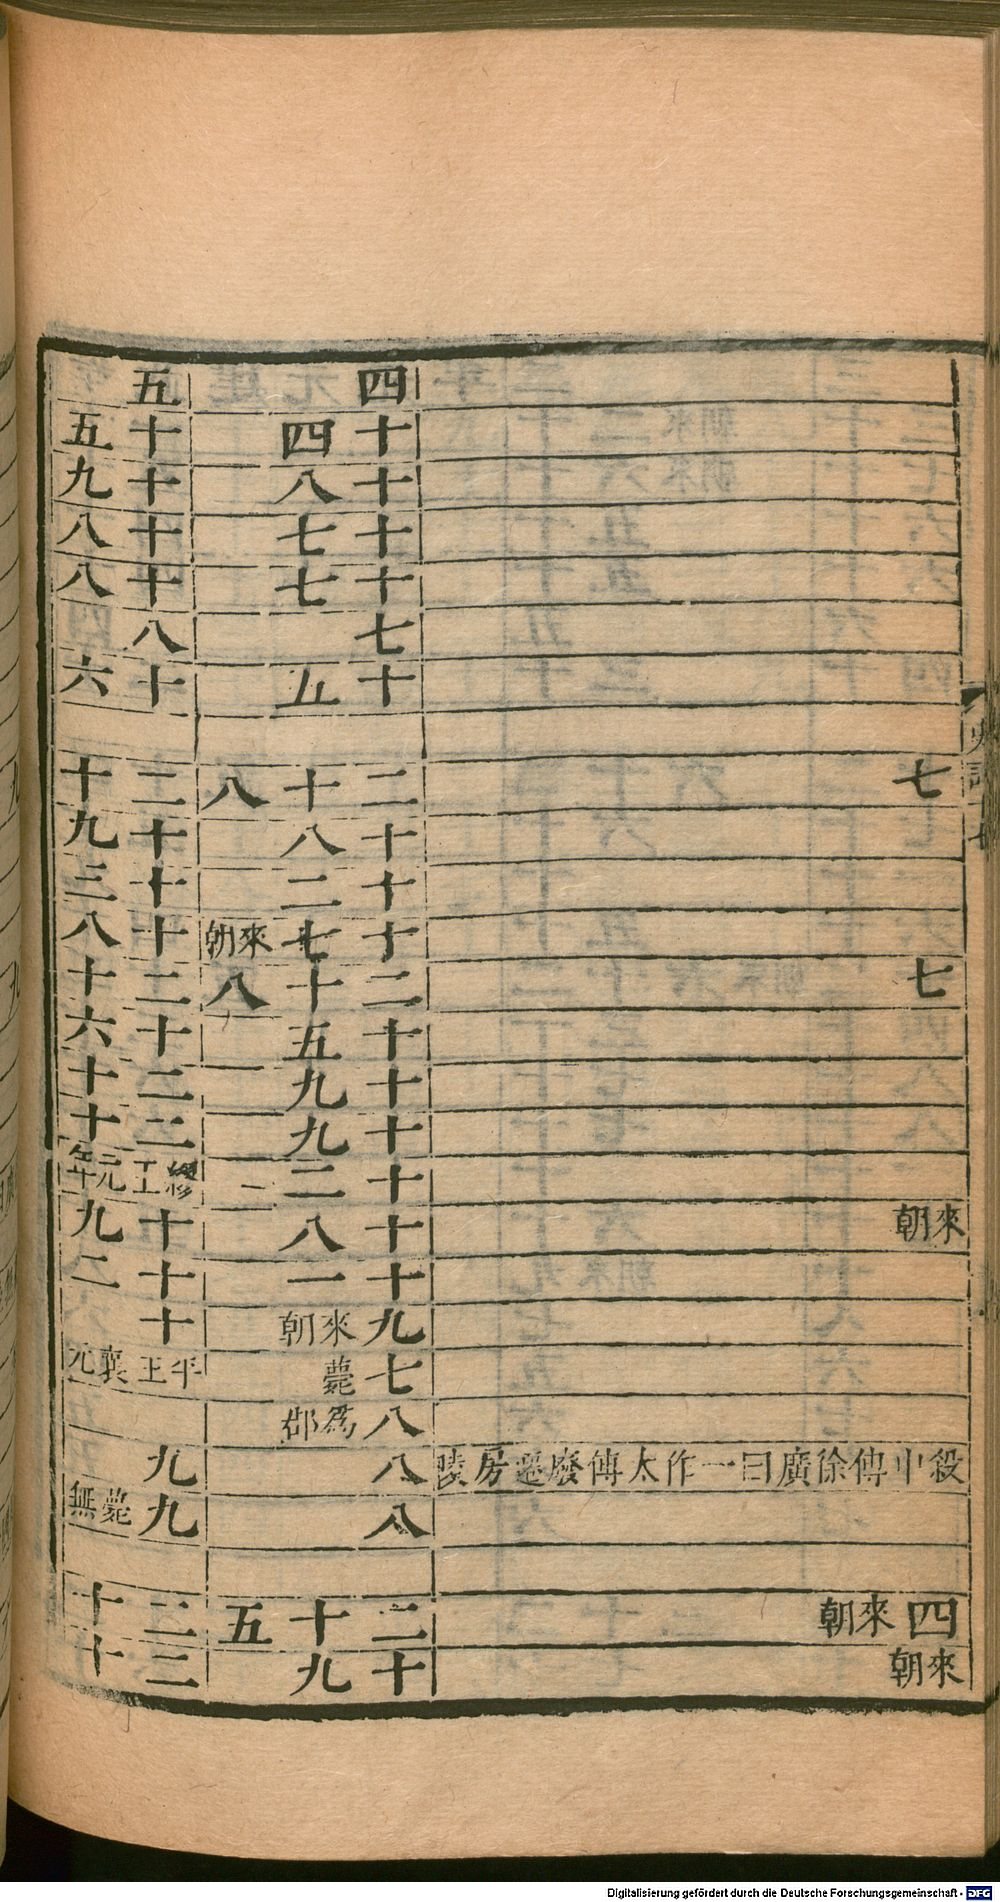 四 五
十四 十五
十八 十九
十七 十八
十七 十八
七 八
十五 十六
史記十七
七 二十八 二十
十八 十九
十二 十三
十七來朝 十八
七 二十八 二十
十五 十六
十九 二十
十九 二十
十二
來朝 十八 十九
十一 十二
九來朝 十
七薨 平王襄元
八為郡
殺中傅徐廣曰一作太傅廢遷房陵 八 九
八 九薨無
四來朝 二十五 二十
來朝 十九 二十
Digitalisierung gefördert durch die Deutsche Forschungsgemeinschaft - DFG